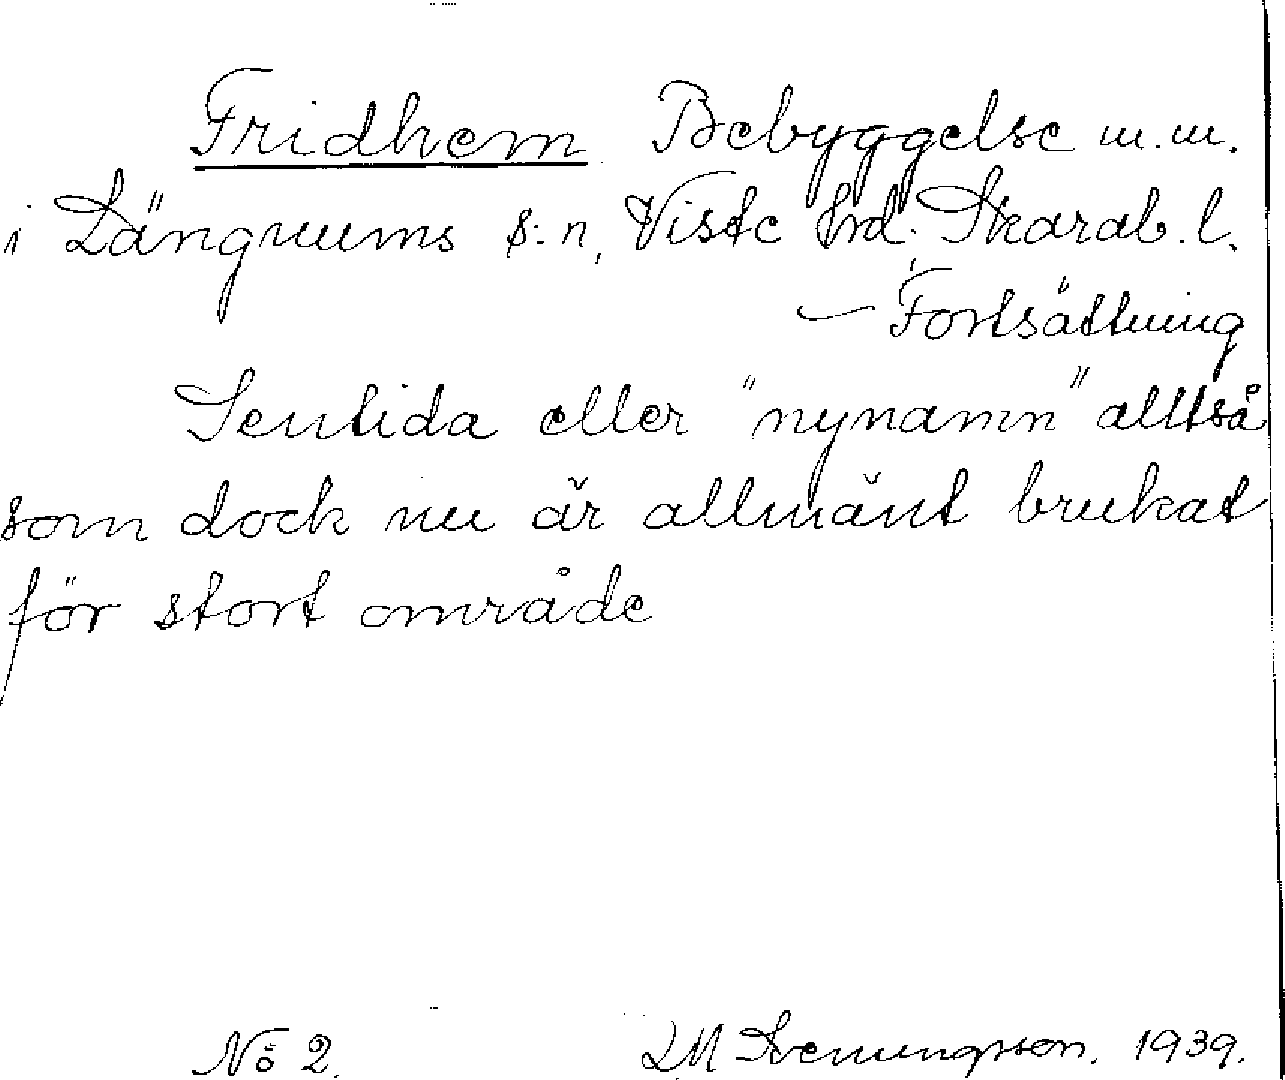 Fridhem Bebyggelse m.m.
i Längnums s:n, Viste hrd. Skarab. l.
— Fortsättning
Sentida eller "nynamn" alltså
som dock nu är allmänt brukat
för stort område
No 2. LM Svenungsson. 1939.